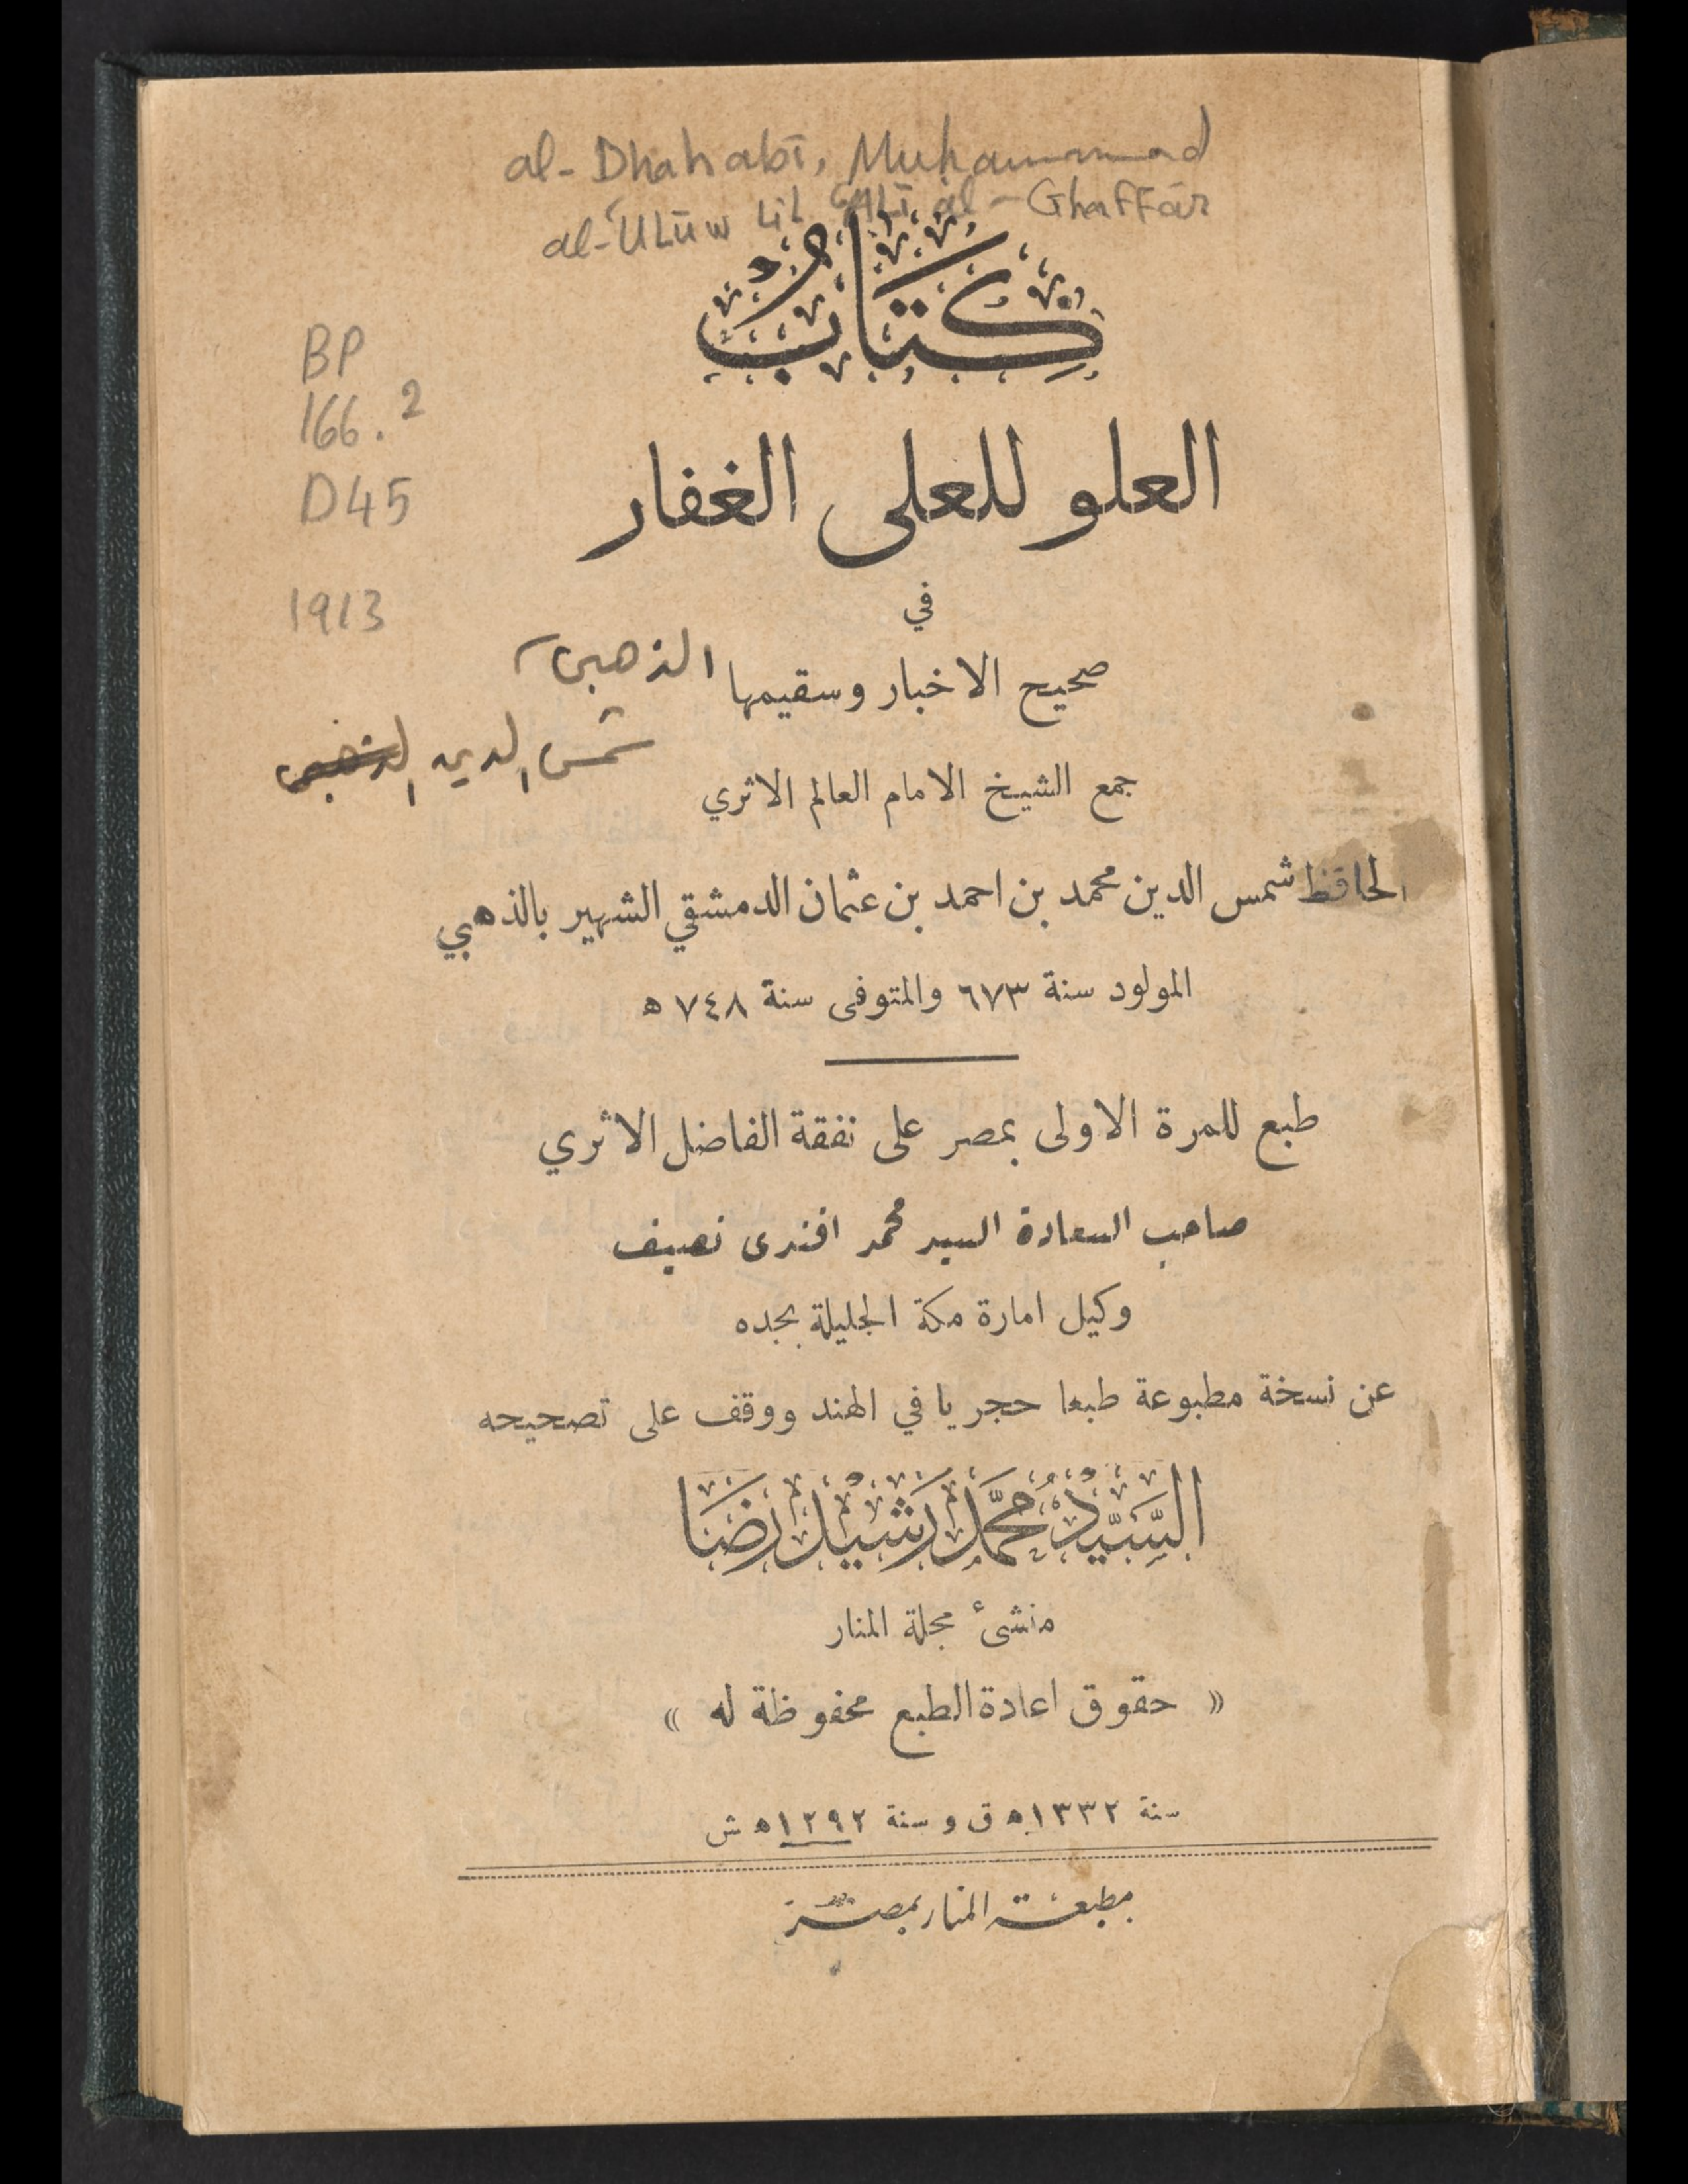 al-Dhahabī, Muḥammad
al-ʿULūw LiL ʿALī al-Ghaffār
كِتَابُ
BP
166.2
D45
1913
العلو للعلى الغفار
في
صحيح الاخبار وسقيمها
الذهبى
شمس الدين
جمع الشيخ الامام العالم الاثري
الحافظ شمس الدين محمد بن احمد بن عثمان الدمشقي الشهير بالذهبي
المولود سنة ٦٧٣ والمتوفى سنة ٧٤٨ ه
طبع للمرة الاولى بمصر على نفقة الفاضل الاثري
صاحب السعادة السيد محمد افندى نصيف
وكيل امارة مكة الجليلة بجده
عن نسخة مطبوعة طبعا حجريا في الهند ووقف على تصحيحه
السَّيِّدُ مُحَمَّد رَشِيْد رِضَا
منشئ مجلة المنار
« حقوق اعادة الطبع محفوظة له »
سنة ١٣٣٢ه ق و سنة ١٢٩٢ه ش
مطبعة المنار بمصر